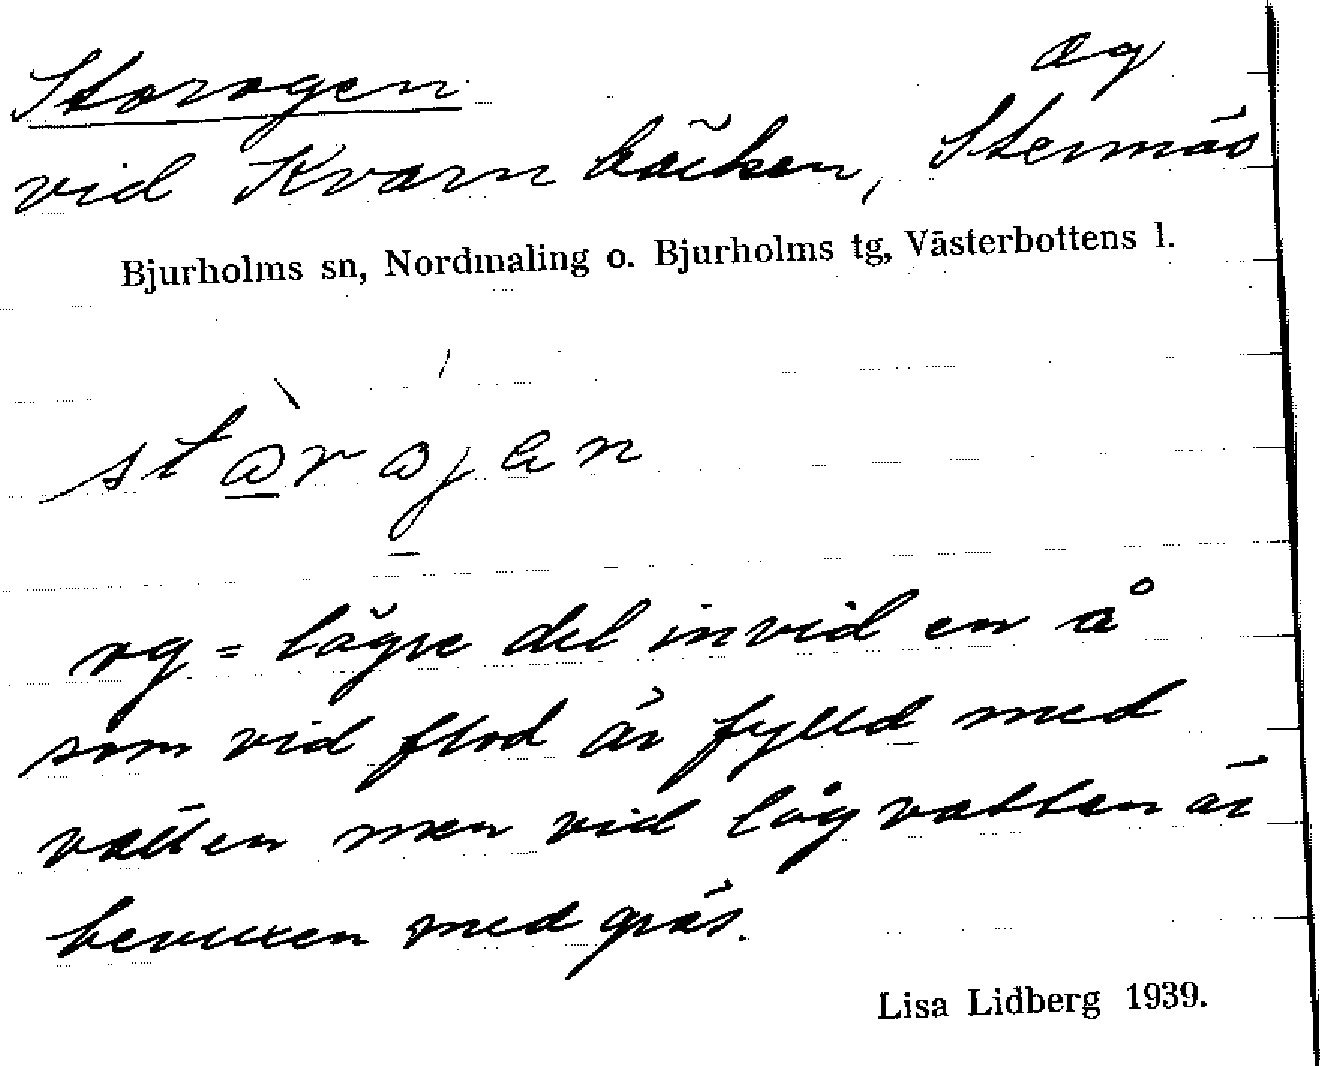 Storogen äg
vid Kvarnbäcken, Stennäs
Bjurholms sn, Nordmaling o. Bjurholms tg, Västerbottens l.
og = lägre del invid en å
som vid flod är fylld med
vatten men vid lågvatten är
bevuxen med gräs.
Lisa Lidberg 1939.